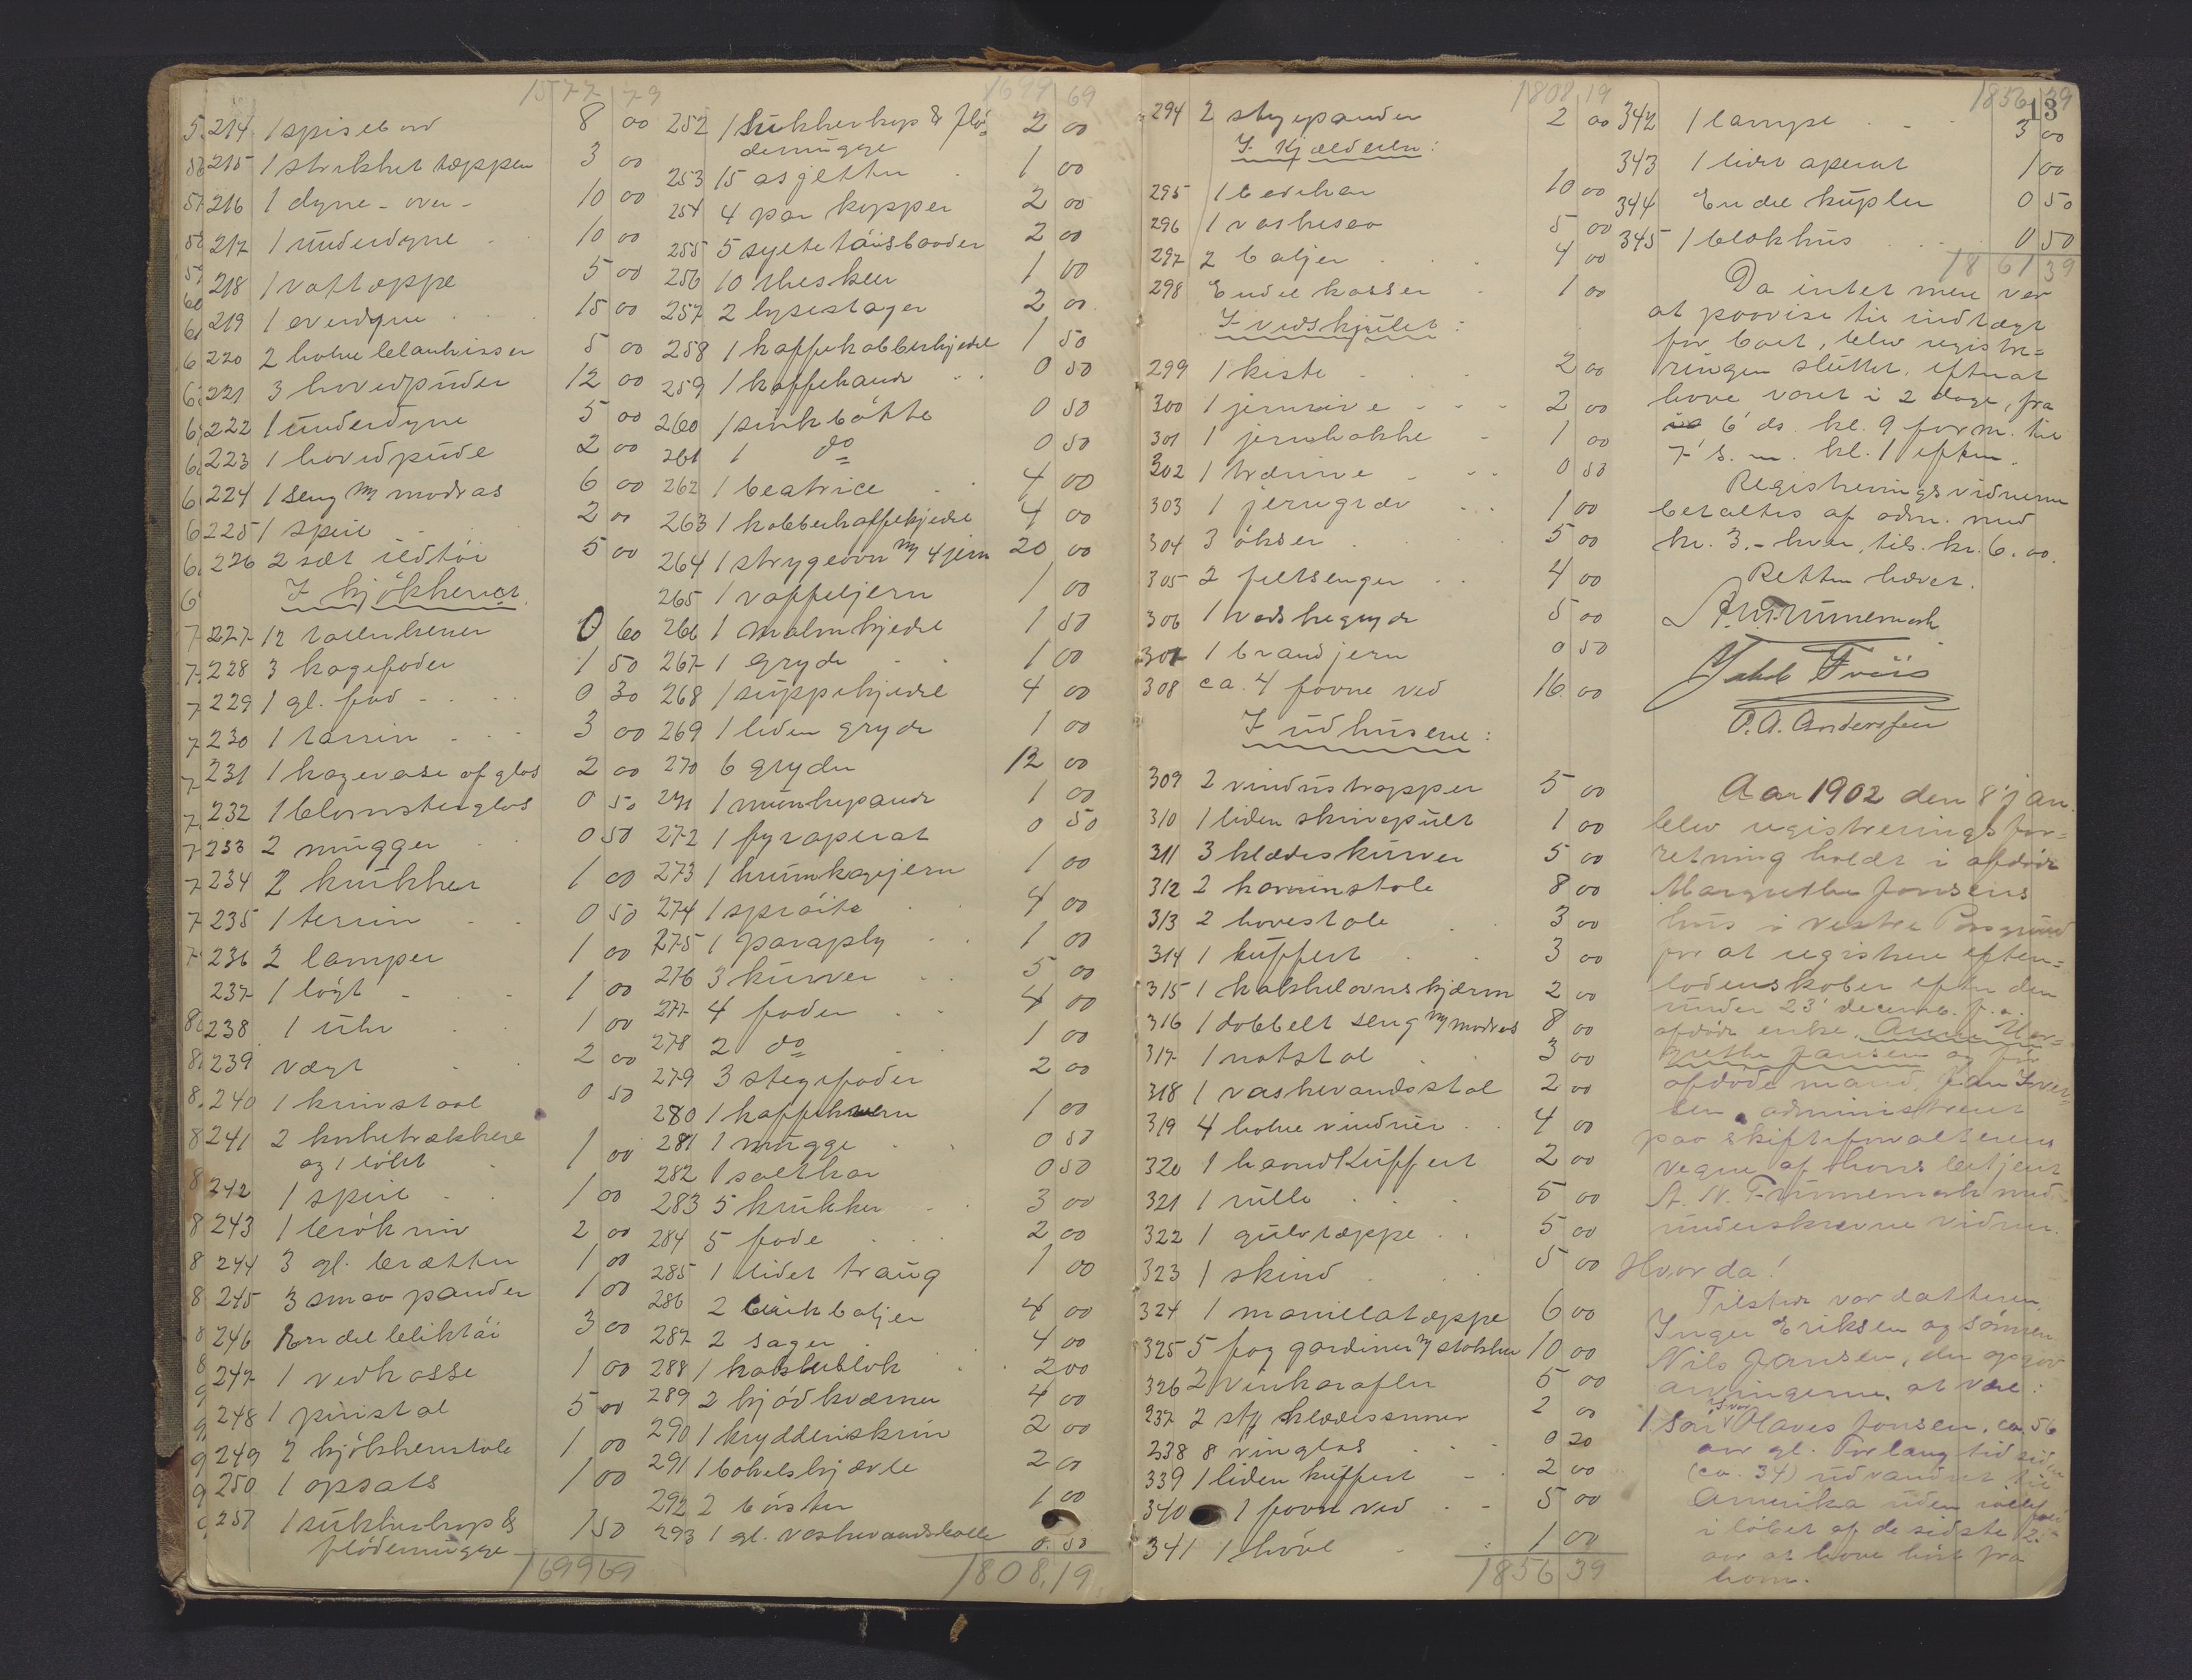 1577 79
214 1 spisebord 8 00
215 1 strikket tæppe 3 00
216 1 dyne - over - 10 00
217 1 underdyne 10 00
218 1 vattæppe 5 00
219 1 overdyne 15 00
220 2 halve 5 00
221 3 hovedpuder 12 00
222 1 underdyne 5 00
223 1 hovedpude 2 00
224 1 seng m/ madras 6 00
225 1 speil 2 00
226 2 sæt ildtöi 5 00
I kjökkenet
227 12 tallerkener 0 60
228 3 kagefader 1 50
229 1 gl. fad 0 30
230 1 tarrin 3 00
231 1 kagevase af glas 2 00
232 1 blomsterglas 0 50
233 2 mugger 0 50
234 2 krukker 1 00
235 1 terrin 0 50
236 2 lamper 1 00
237 1 lögt 1 00
238 1 uhr 1 00
239 vægt 2 00
240 1 krinstol 0 50
241 2
og 1 1 00
242 1 speil 1 00
243 1 brökniv 2 00
244 3 gl. brætter 1 00
245 3 smaa pander 1 00
246 En del bliktöi 3 00
247 1 vedkasse 1 00
248 1 pinistol 5 00
249 2 kjökkenstole 1 00
250 1 opsats 1 00
251 1 sukkerkop &
flödemugge 1 50
1699 69
1699 69
252 1 sukkerkop & flö-
demugge 2 00
253 15 asjetter 1 00
254 4 par kopper 2 00
255 5 syltetöisboller 2 00
256 10 theskeer 1 00
257 2 lysestager 2 00
258 1 kaffekobberkjedel 1 50
259 1 kaffekande 0 50
260 1 sinkbötte 0 50
261 1 do 0 50
262 1 beatrice 4 00
263 1 kobberkaffekjedel 4 00
264 1 strygeovn m/ 4 jern 20 00
265 1 vaffeljern 1 00
266 1 malmkjedel 1 50
267 1 gryde 1 00
268 1 suppekjedel 4 00
269 1 liden gryde 1 00
270 6 gryder 12 00
271 1 munkepande 1 00
272 1 fyraperat 0 50
273 1 krumkagejern 1 00
274 1 spröite 4 00
275 1 paraply 1 00
276 3 kurver 5 00
277 4 fader 4 00
278 2 do 1 00
279 3 stegefader 2 00
280 1 kaffekvern 1 00
281 1 mugge 0 50
282 1 saltkar 0 50
283 5 krukker 3 00
284 5 fade 2 00
285 1 lidet traug 1 00
286 2 blikbaljer 4 00
287 2 sager 4 00
288 1 kakkelblok 2 00
289 2 kjödkværner 4 00
290 1 krydderiskrin 2 00
291 1 bakelskjævle 2 00
292 2 börster 1 00
293 1 gl. vaskevandsballe 0 50
1808,19
1808 19
294 2 stegepander 2 00
I kjælderen:
295 1 10 00
296 1 vaskesaa 5 00
297 2 baljer 4 00
298 En del kasser 1 00
I vedskjulet:
299 1 kiste 2 00
300 1 jernrive 2 00
301 1 jernhakke 1 00
302 1 trærive 0 50
303 1 jerngrev 1 00
304 3 ökser 5 00
305 2 feltsenger 4 00
306 1 vaskegryde 5 00
307 1 brandjern 0 50
308 ca. 4 favne ved 16 00
I udhusene:
309 2 vindustrapper 5 00
310 1 liden skrivepult 1 00
311 3 klædeskurver 5 00
312 2 kaminstole 8 00
313 2 havestole 3 00
314 1 kuffert 3 00
315 1 kakkelovnskjærm 2 00
316 1 dobbelt seng m/ madras 8 00
317 1 natstol 3 00
318 1 vaskevandsstol 2 00
319 4 halve vinduer 4 00
320 1 haandkuffert 2 00
321 1 rulle 5 00
322 1 gulvtæppe 5 00
323 1 skind 5 00
324 1 manillatæppe 6 00
325 5 fag gardiner m/ stokker 10 00
326 2 vinkarafler 5 00
237 2 stk klædessnner 2 00
238 8 vinglas 0 20
339 1 liden kuffert 2 00
340 1 favn ved 5 00
341 1 hövl 1 00
1856 39
1856 39
13
342 1 lampe 3 00
343 1 lidet aperat 1 00
344 En del kupler 0 50
345 1 blokhus 0 50
1861 39
Da intet mere var
at paavise til indtægt
for boet, blev registre-
ringen sluttet, efterat
have varet i 2 dage, fra
6' ds. kl. 9 form. til
7' s. m. kl. 1 efterm.
Registreringsvidnerne
betaltes af adm. med
kr. 3.- hver, tils. kr. 6.00.
Retten hævet.
A. N. Trummerch
Jakob Friis
O. A. Andersen
Aar 1902 den 8' jan.
blev registreringsfor-
retning holdt i afdöde
Margrethe Jansens
hus i vestre Porsgrund
for at registrere efter-
ladenskaber efter den
under 23' decemb. f. a.
afdöde enke, Anne Mar-
grethe Jansen og för
afdöde mand, Jan Iver-
sen administreret
paa skifteforvalterens
vegne af hans betjent
A. N. Trummerch med
underskrevne vidner.
Hvorda!
Tilstede var datteren
Inger Eriksen og sönnen
Nils Jansen, der opgav
arvingerne at være:
1. Sön Iver Olaves Jansen, ca. 56
aar gl. For lang tid siden
(ca. 34) udvandret til
Amerika uden
i löbet af de sidste 12
aar at have hört fra
ham.